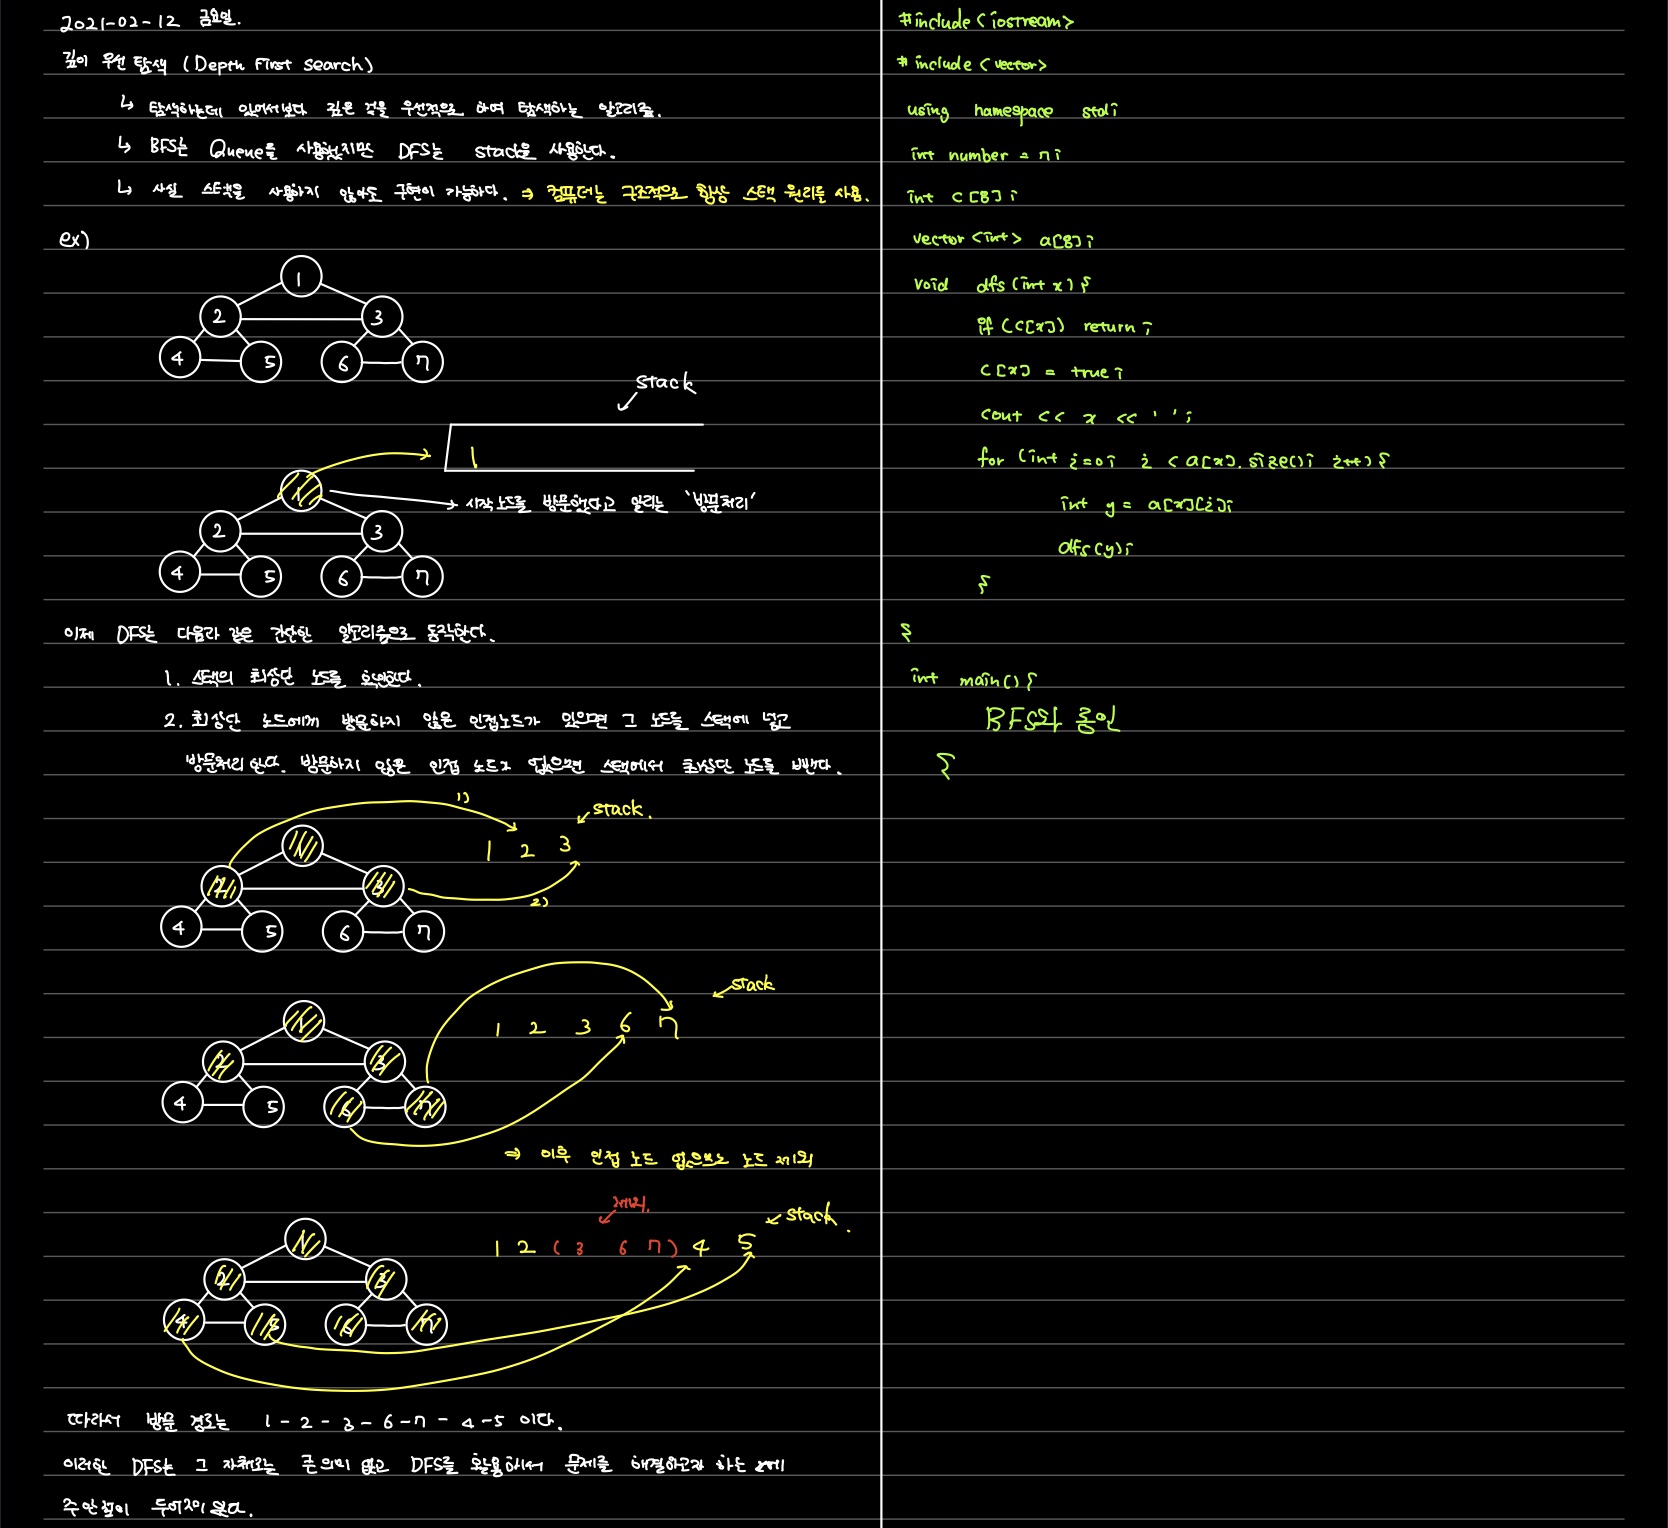 2021-02-12 금요일.
깊이 우선 탐색 (Depth First Search)
↳ 탐색하는데 있어서보다 깊은 것을 우선적으로 하여 탐색하는 알고리즘.
↳ BFS는 Queue를 사용했지만 DFS는 stack을 사용한다.
↳ 사실 스택을 사용하지 않아도 구현이 가능하다. ⇒ 컴퓨터는 구조적으로 항상 스택 원리를 사용.
ex)
1
2 3
4 5 6 7
stack
1
1
→ 시작노드를 방문했다고 알리는 '방문처리'
2 3
4 5 6 7
이제 DFS는 다음과 같은 간단한 알고리즘으로 동작한다.
1. 스택의 최상단 노드를 확인한다.
2. 최상단 노드에게 방문하지 않은 인접노드가 있으면 그 노드를 스택에 넣고
방문처리 한다. 방문하지 않은 인접 노드가 없으면 스택에서 최상단 노드를 뺀다.
1)
stack.
1 2 3
1
2 3
2)
4 5 6 7
stack
1 2 3 6 7
1
2 3
4 5 6 7
⇒ 이후 인접 노드 없으므로 노드 제외
제외.
stack.
1 2 ( 3 6 7 ) 4 5
1
2 3
4 5 6 7
따라서 방문 경로는 1 - 2 - 3 - 6 - 7 - 4 - 5 이다.
이러한 DFS는 그 자체로는 큰 의미 없고 DFS를 활용해서 문제를 해결하고자 하는 것에
주안점이 두어져 있다.
#include <iostream>
#include <vector>
using namespace std;
int number = 7;
int c[8];
vector<int> a[8];
void dfs(int x) {
if (c[x]) return;
c[x] = true;
cout << x << ' ';
for (int i=0; i < a[x].size(); i++) {
int y = a[x][i];
dfs(y);
}
}
int main() {
BFS와 동일
}